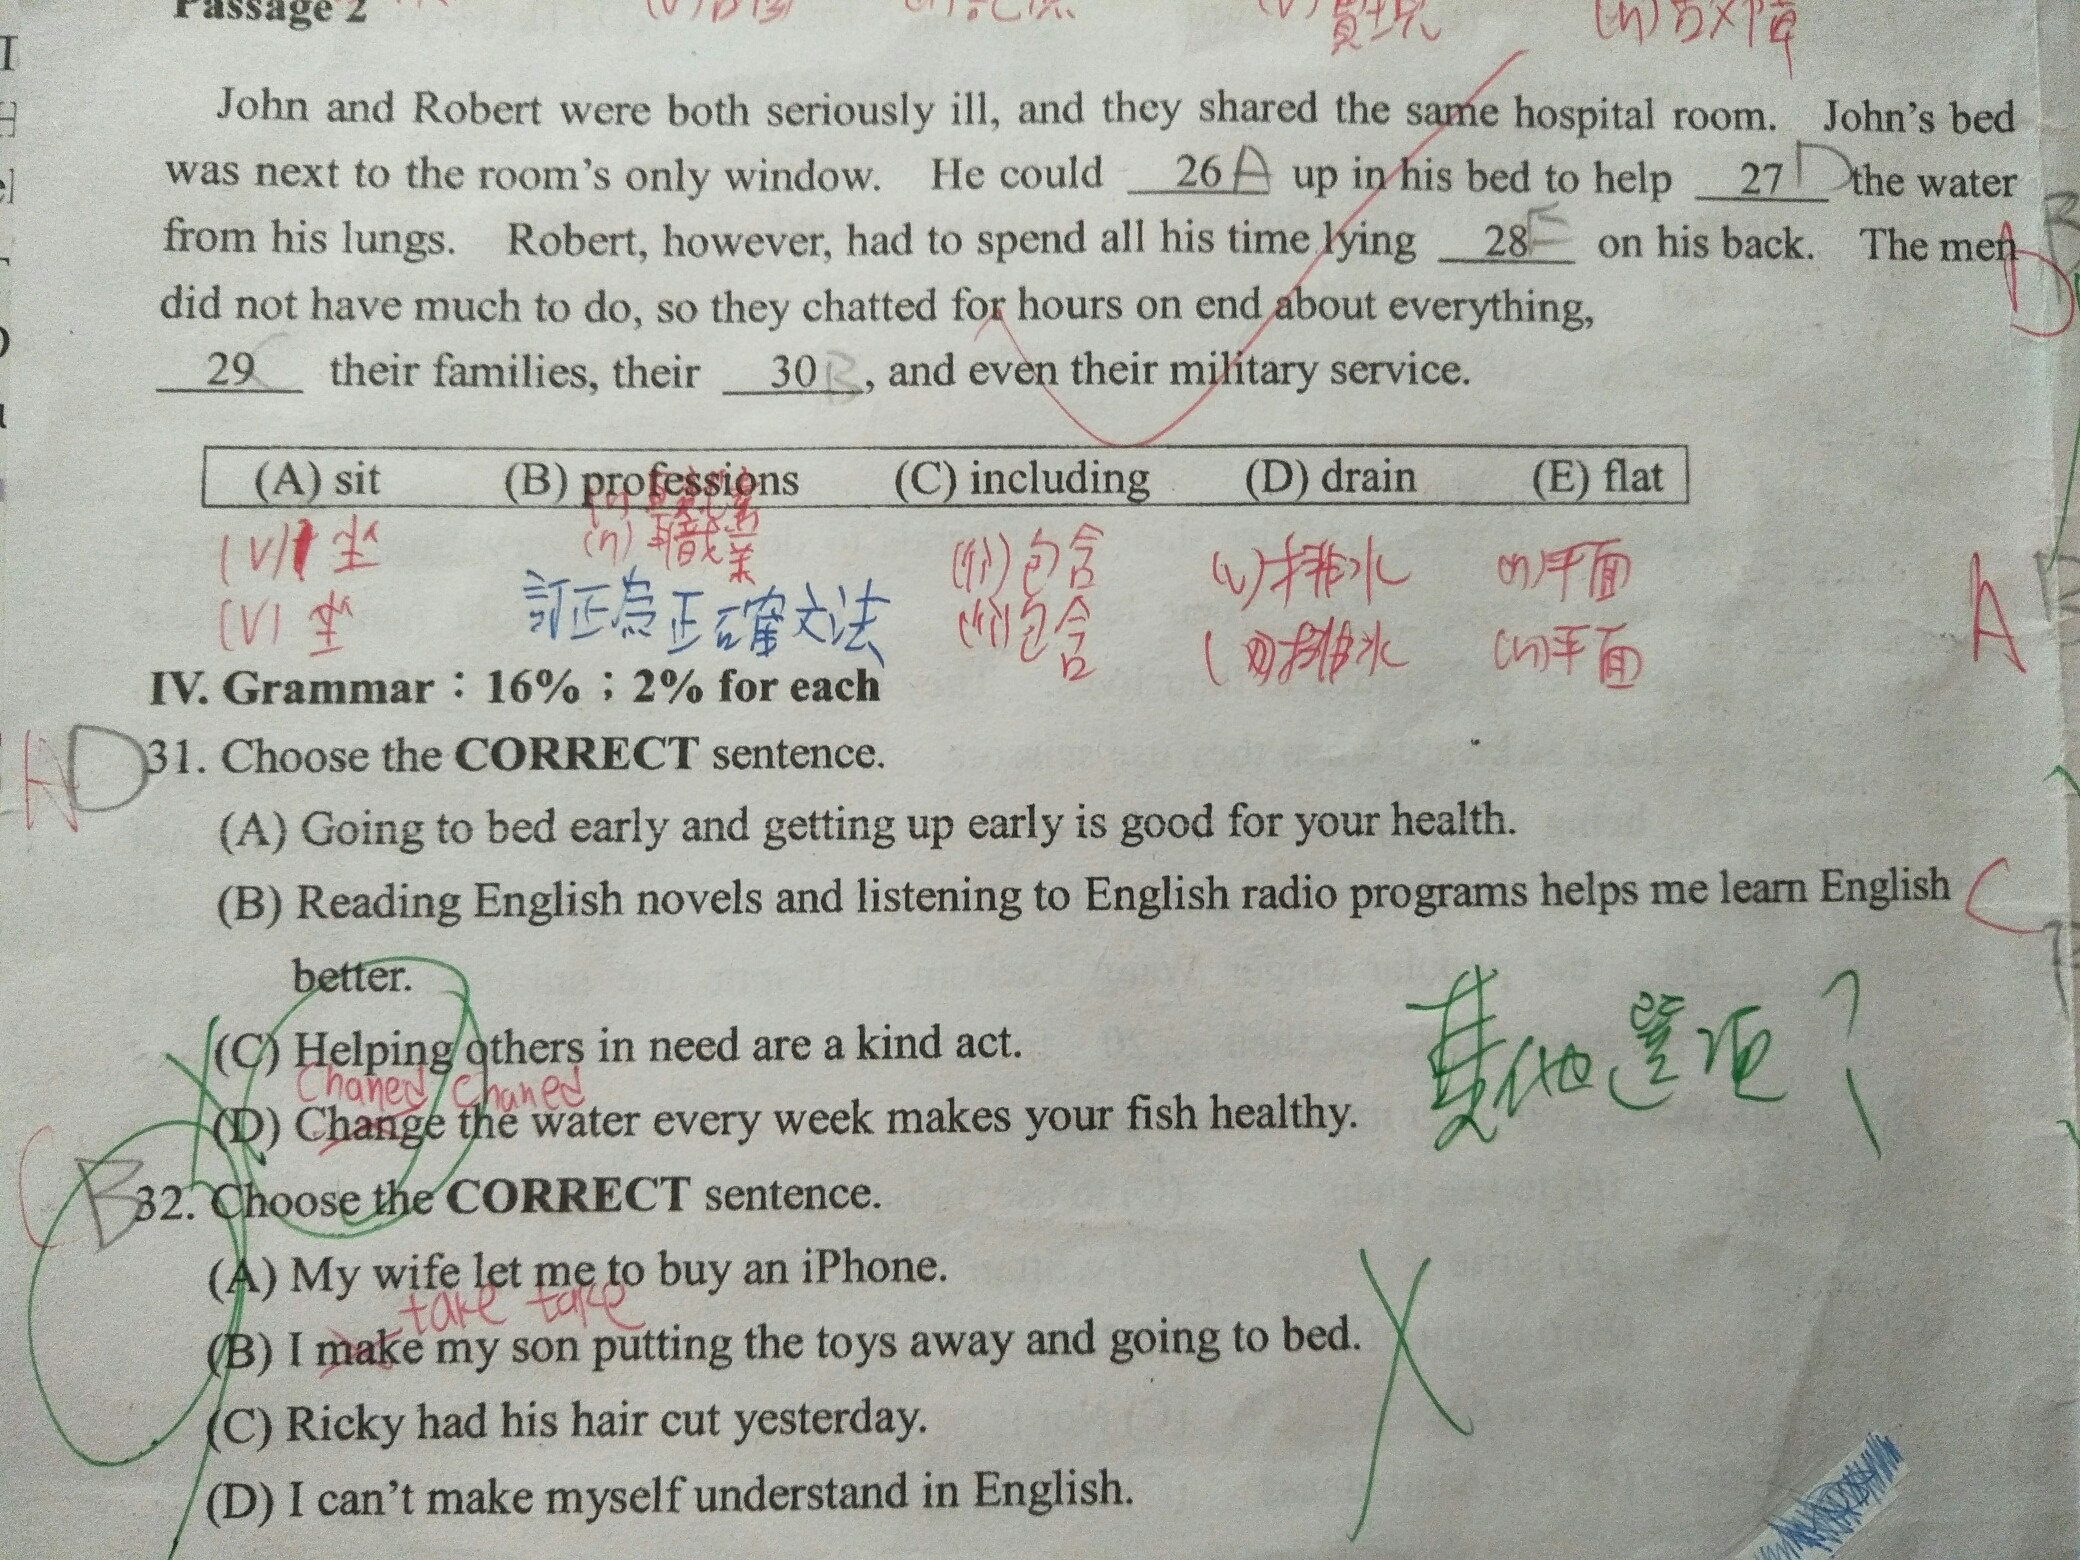 Passage 2
John and Robert were both seriously ill, and they shared the same hospital room. John's bed
was next to the room's only window. He could 26 A up in his bed to help 27 D the water
from his lungs. Robert, however, had to spend all his time lying 28 E on his back. The men
did not have much to do, so they chatted for hours on end about everything,
29 C their families, their 30 B, and even their military service.
(A) sit (B) professions (C) including (D) drain (E) flat
(V) 坐 (n) 職業 (介) 包含 (v) 排水 (n) 平面
(V) 坐 訂正為正確文法 (介) 包含 排水 (n) 平面
IV. Grammar：16%；2% for each
A D 31. Choose the CORRECT sentence.
(A) Going to bed early and getting up early is good for your health.
(B) Reading English novels and listening to English radio programs helps me learn English
better.
(C) Helping others in need are a kind act.
其他選項？
Chaned Chaned
(D) Change the water every week makes your fish healthy.
C B 32. Choose the CORRECT sentence.
(A) My wife let me to buy an iPhone.
take take
(B) I make my son putting the toys away and going to bed.
(C) Ricky had his hair cut yesterday.
(D) I can't make myself understand in English.
D
A
C